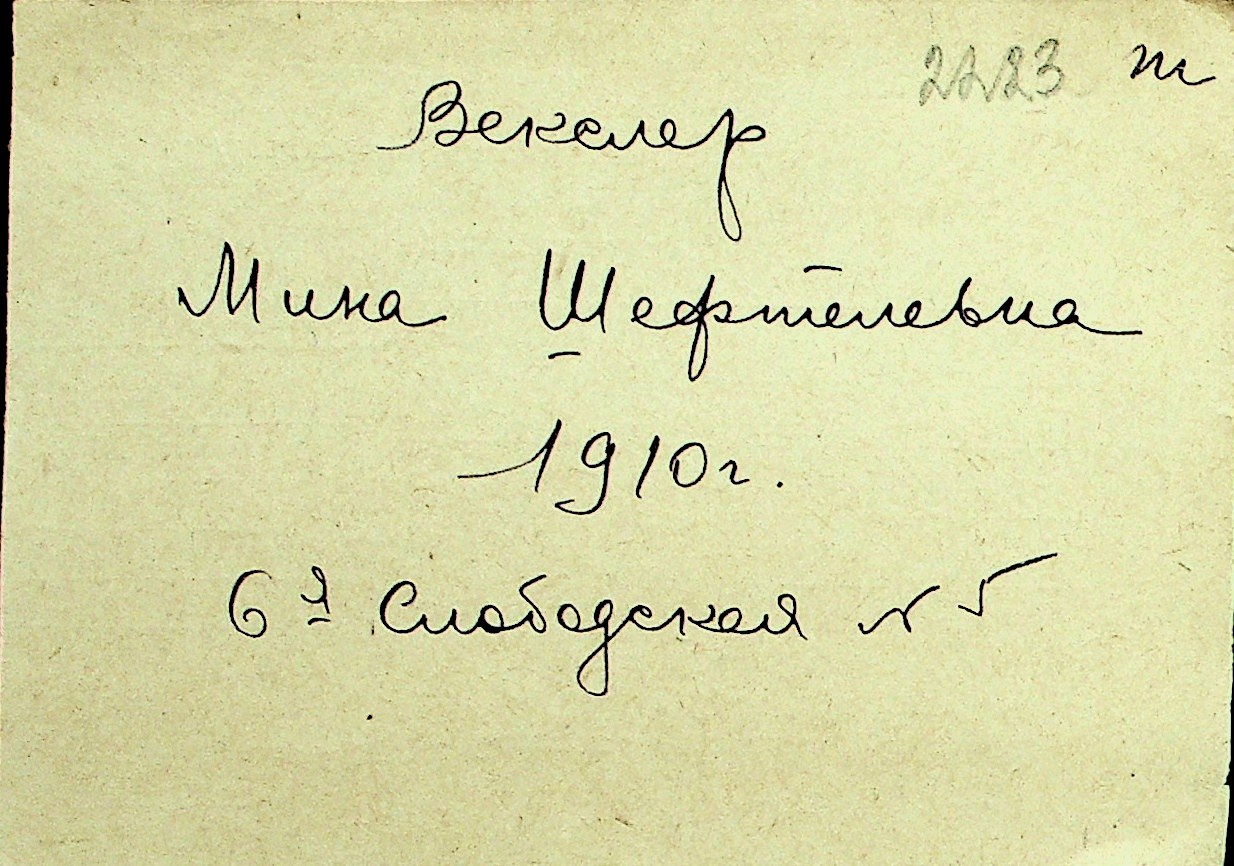 2223 т
Векслер
Мина Шефтелевна
1910г.
6я Слободская N 5